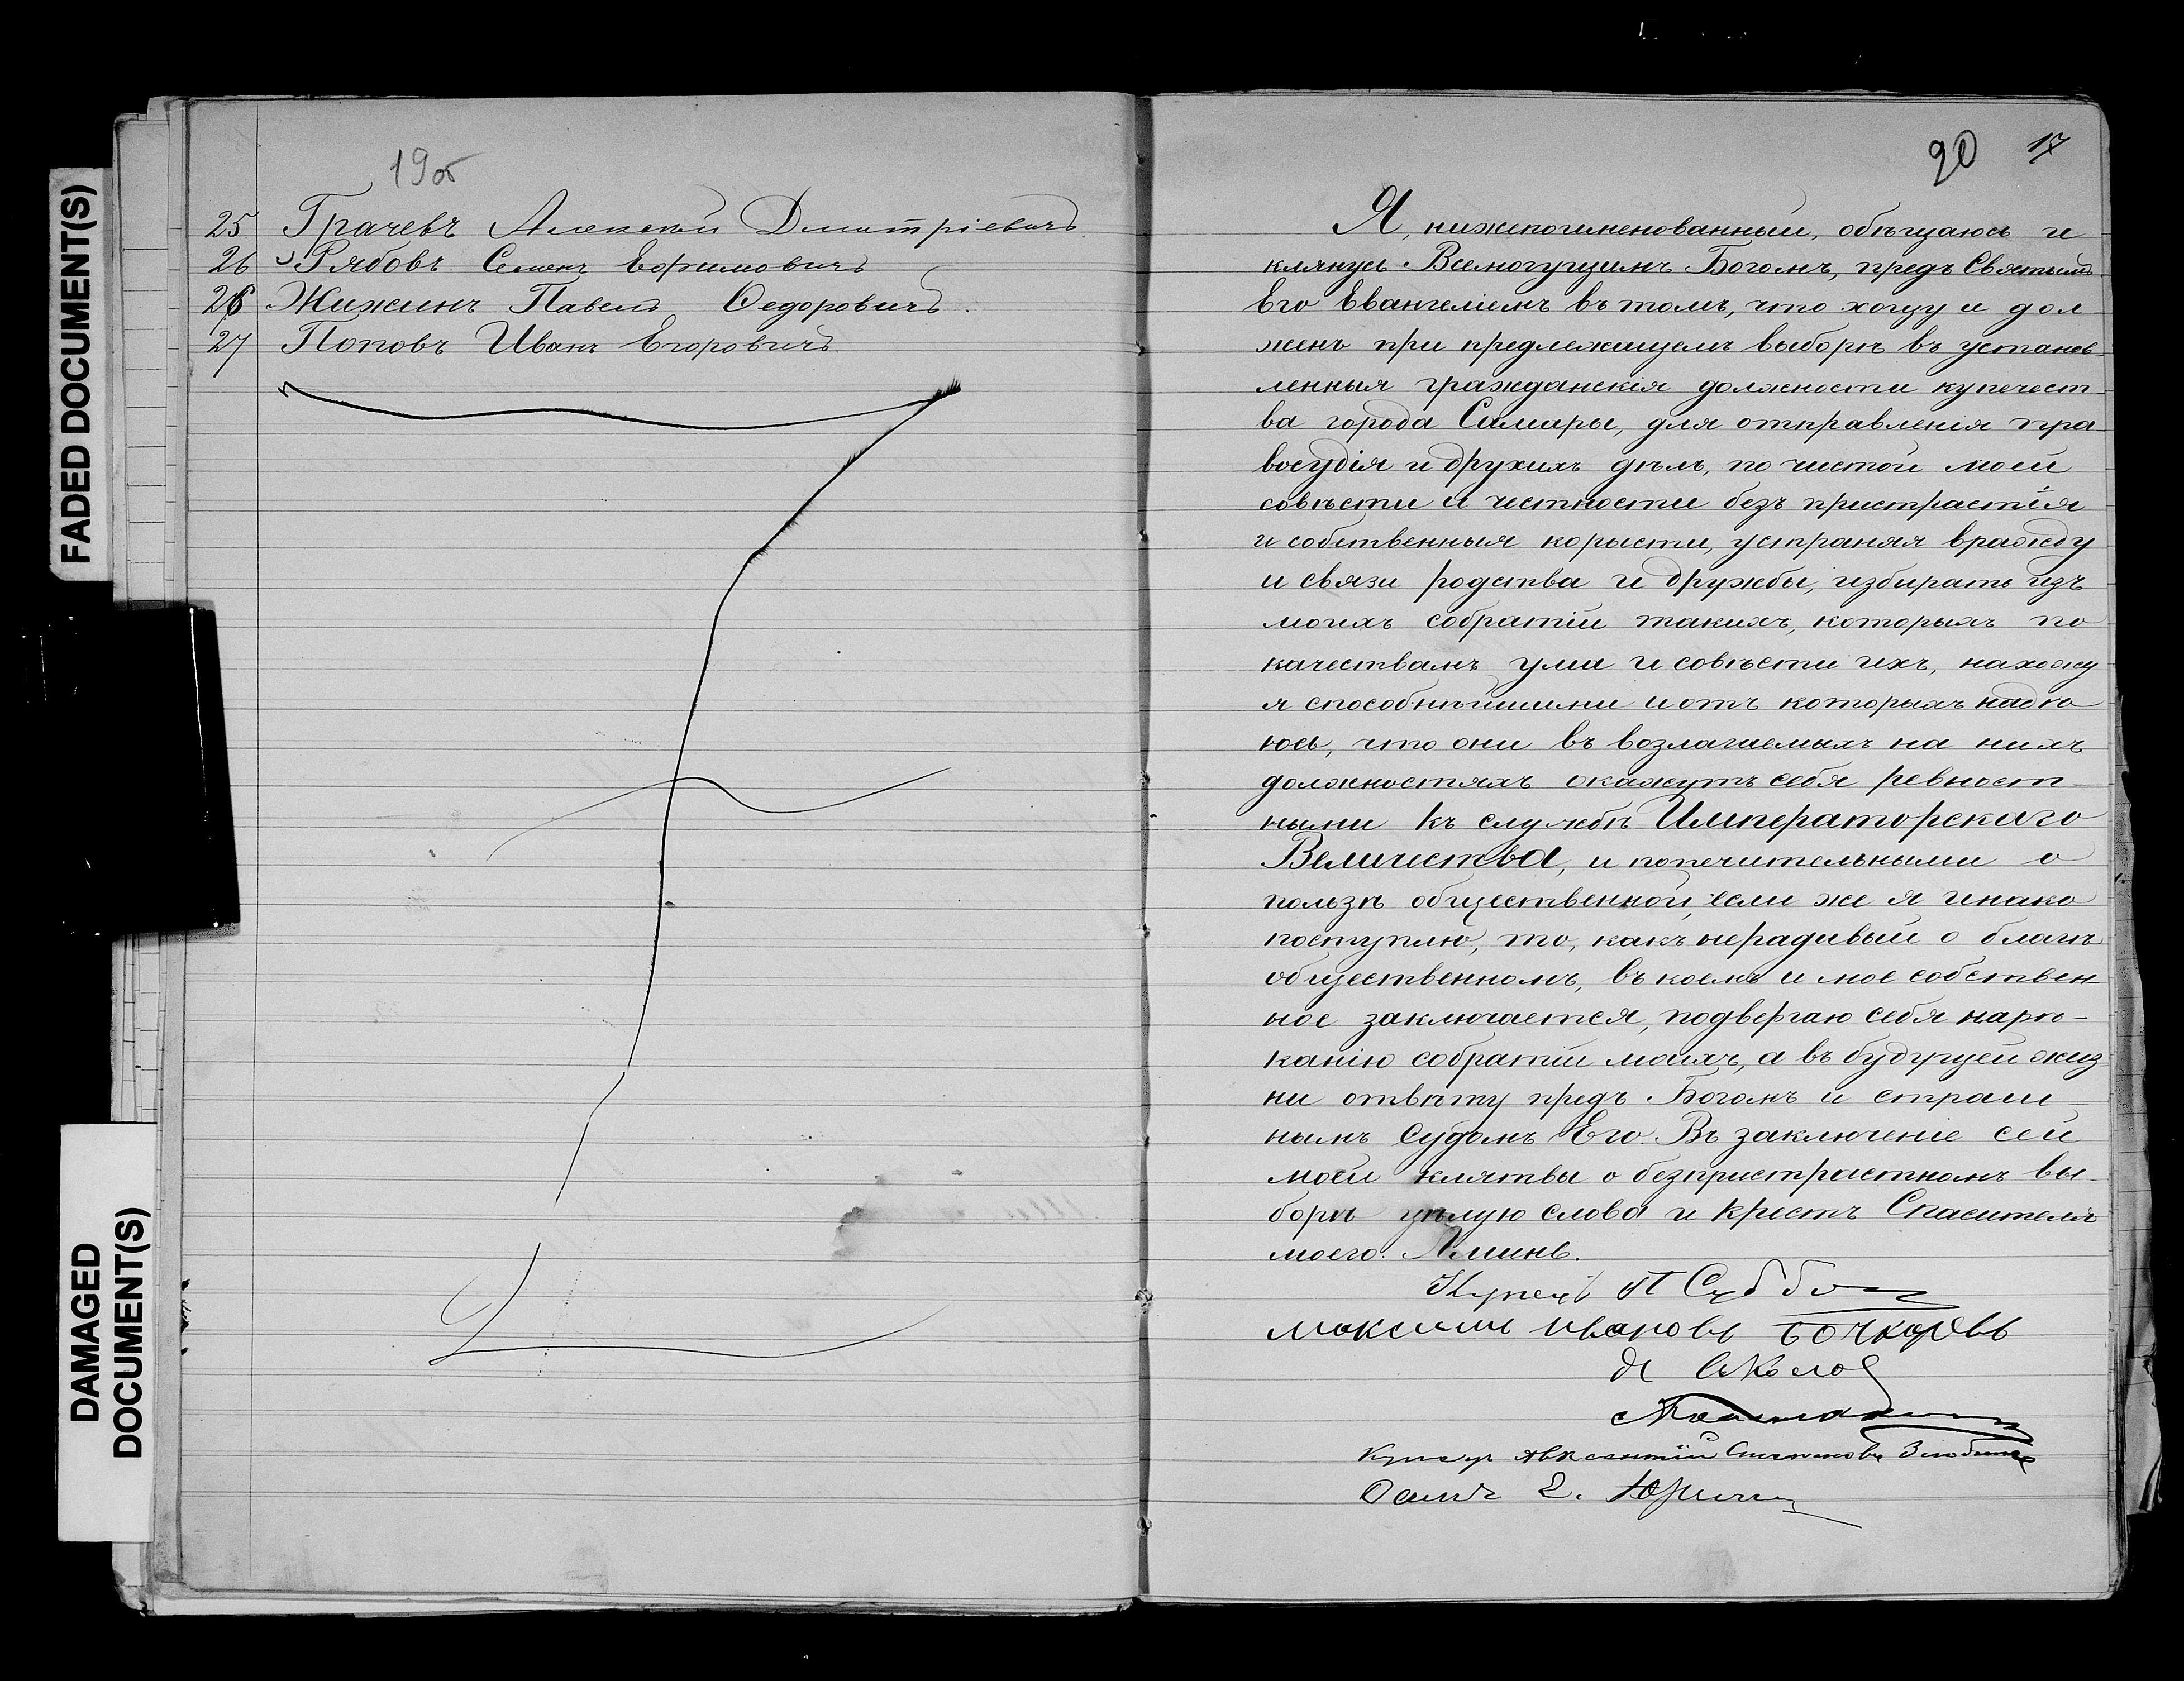 FADED DOCUMENT(S)
DAMAGED
DOCUMENT(S)
19об
25 Грачевъ Алексѣй Дмитріевичъ
26 Рябовъ Семенъ Ефимовичъ
26 Жижинъ Павелъ Ѳедоровичъ.
27 Поповъ Иванъ Егоровичъ
20 17
Я, нижепоименованный, обѣщаюсь и
клянусь Всемогущимъ Богомъ, предъ Святымъ
Его Евангеліемъ въ томъ, что хощу и дол
женъ при предлежащемъ выборѣ въ установ-
ленныя гражданскія должности купечест-
ва города Самары, для отправленія пра-
восудія и другихъ дѣлъ, по чистой моей
совѣсти и честности безъ пристрастія
и собственныя корысти, устраняя вражду
и связи родства и дружбы, избирать изъ
моихъ собратій такихъ, которыхъ по
качествамъ ума и совѣсти ихъ, нахожу
я способнѣйшими и отъ которыхъ надѣ
юсь, что они въ возлагаемыхъ на нихъ
должностяхъ окажутъ себя ревност-
ными къ службѣ Императорскаго
Величества, и попечительными о
пользѣ общественной, если же я инако
поступлю, то, какъ нерадивый о благѣ
общественномъ, въ коемъ и мое собствен-
ное заключается, подвергаю себя нарѣ-
канію собратій моихъ, а въ будущей жиз
ни отвѣту предъ Богомъ и страш-
нымъ Судомъ Его. Въ заключеніе сей
моей клятвы о безпристрастномъ вы-
борѣ цѣлую слова и Крестъ Спасителя
моего. Аминь.
Купецъ П Субботин
Максимъ Ивановъ Бочкаревъ
Соколов
Авксентій Злобинъ
Е. Юринъ